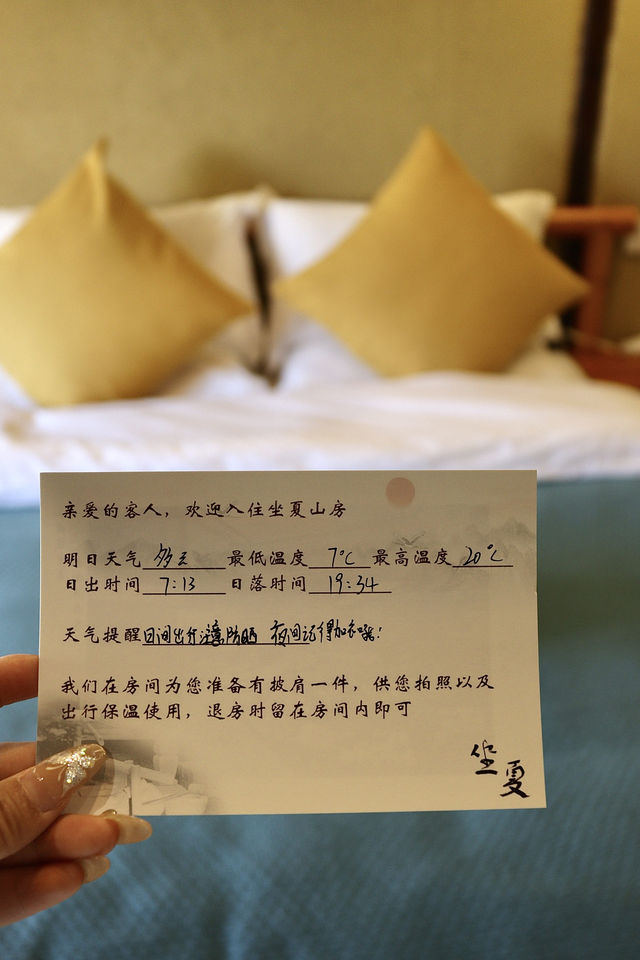 亲爱的客人，欢迎入住坐夏山房
明日天气 多云 最低温度 7℃ 最高温度 20℃
日出时间 7:13 日落时间 19:34
天气提醒 日间出行注意防晒 夜间记得加衣哦！
我们在房间为您准备有披肩一件，供您拍照以及
出行保温使用，退房时留在房间内即可
坐夏